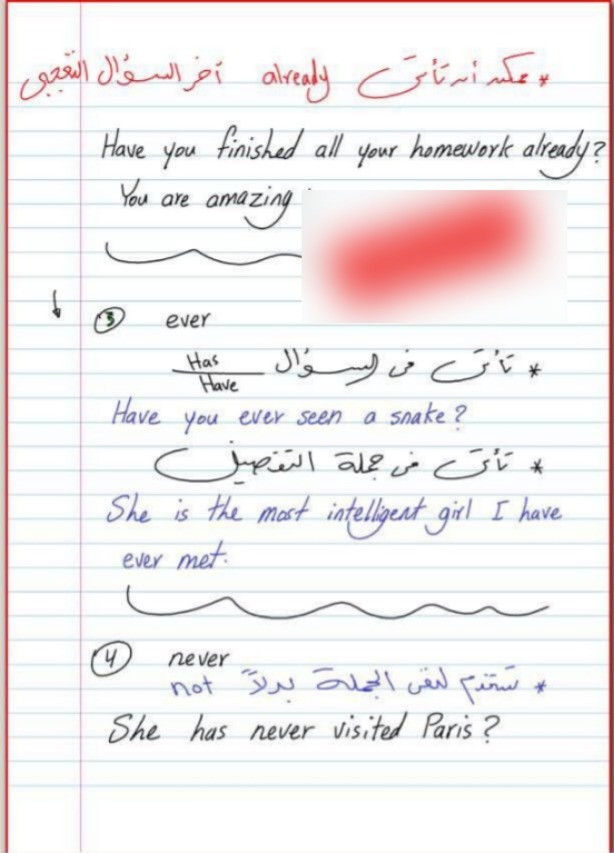 * يمكن أن تأتى already آخر السؤال التعجبى
Have you finished all your homework already?
You are amazing
③ ever
* تأتى فى السؤال Has / Have
Have you ever seen a snake?
* تأتى فى جملة التفضيل
She is the most intelligent girl I have
ever met.
④ never
* تستخدم لنفى الجملة بدلاً not
She has never visited Paris?